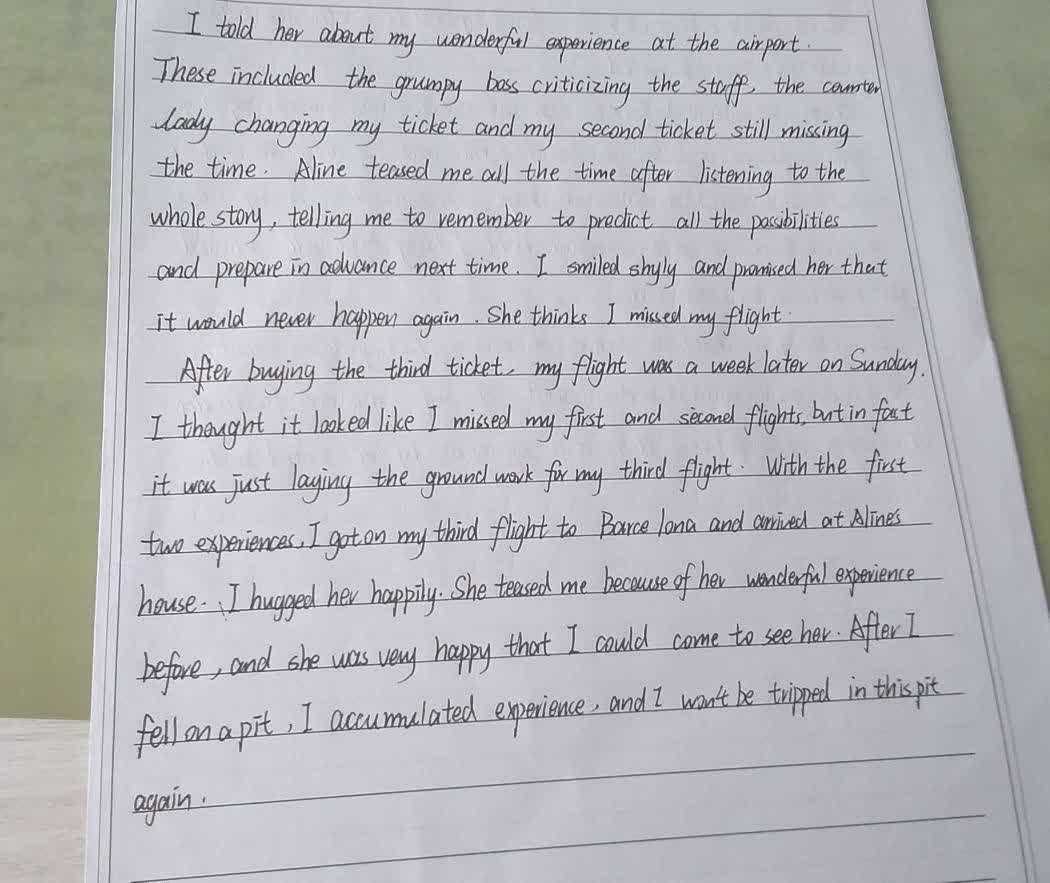 I told her about my wonderful experience at the airport.
These included the grumpy boss criticizing the staff, the counter
lady changing my ticket and my second ticket still missing
the time. Aline teased me all the time after listening to the
whole story, telling me to remember to predict all the possibilities
and prepare in advance next time. I smiled shyly and promised her that
it would never happen again. She thinks I missed my flight.
After buying the third ticket, my flight was a week later on Sunday.
I thought it looked like I missed my first and second flights, but in fact
it was just laying the ground work for my third flight. With the first
two experiences, I got on my third flight to Barce lona and arrived at Aline's
house. I hugged her happily. She teased me because of her wonderful experience
before, and she was very happy that I could come to see her. After I
fell on a pit, I accumulated experience, and I won't be tripped in this pit
again.